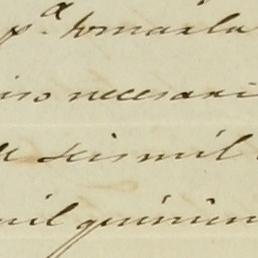 pª. tomarla
iso necesari
seis mil
mil quinien